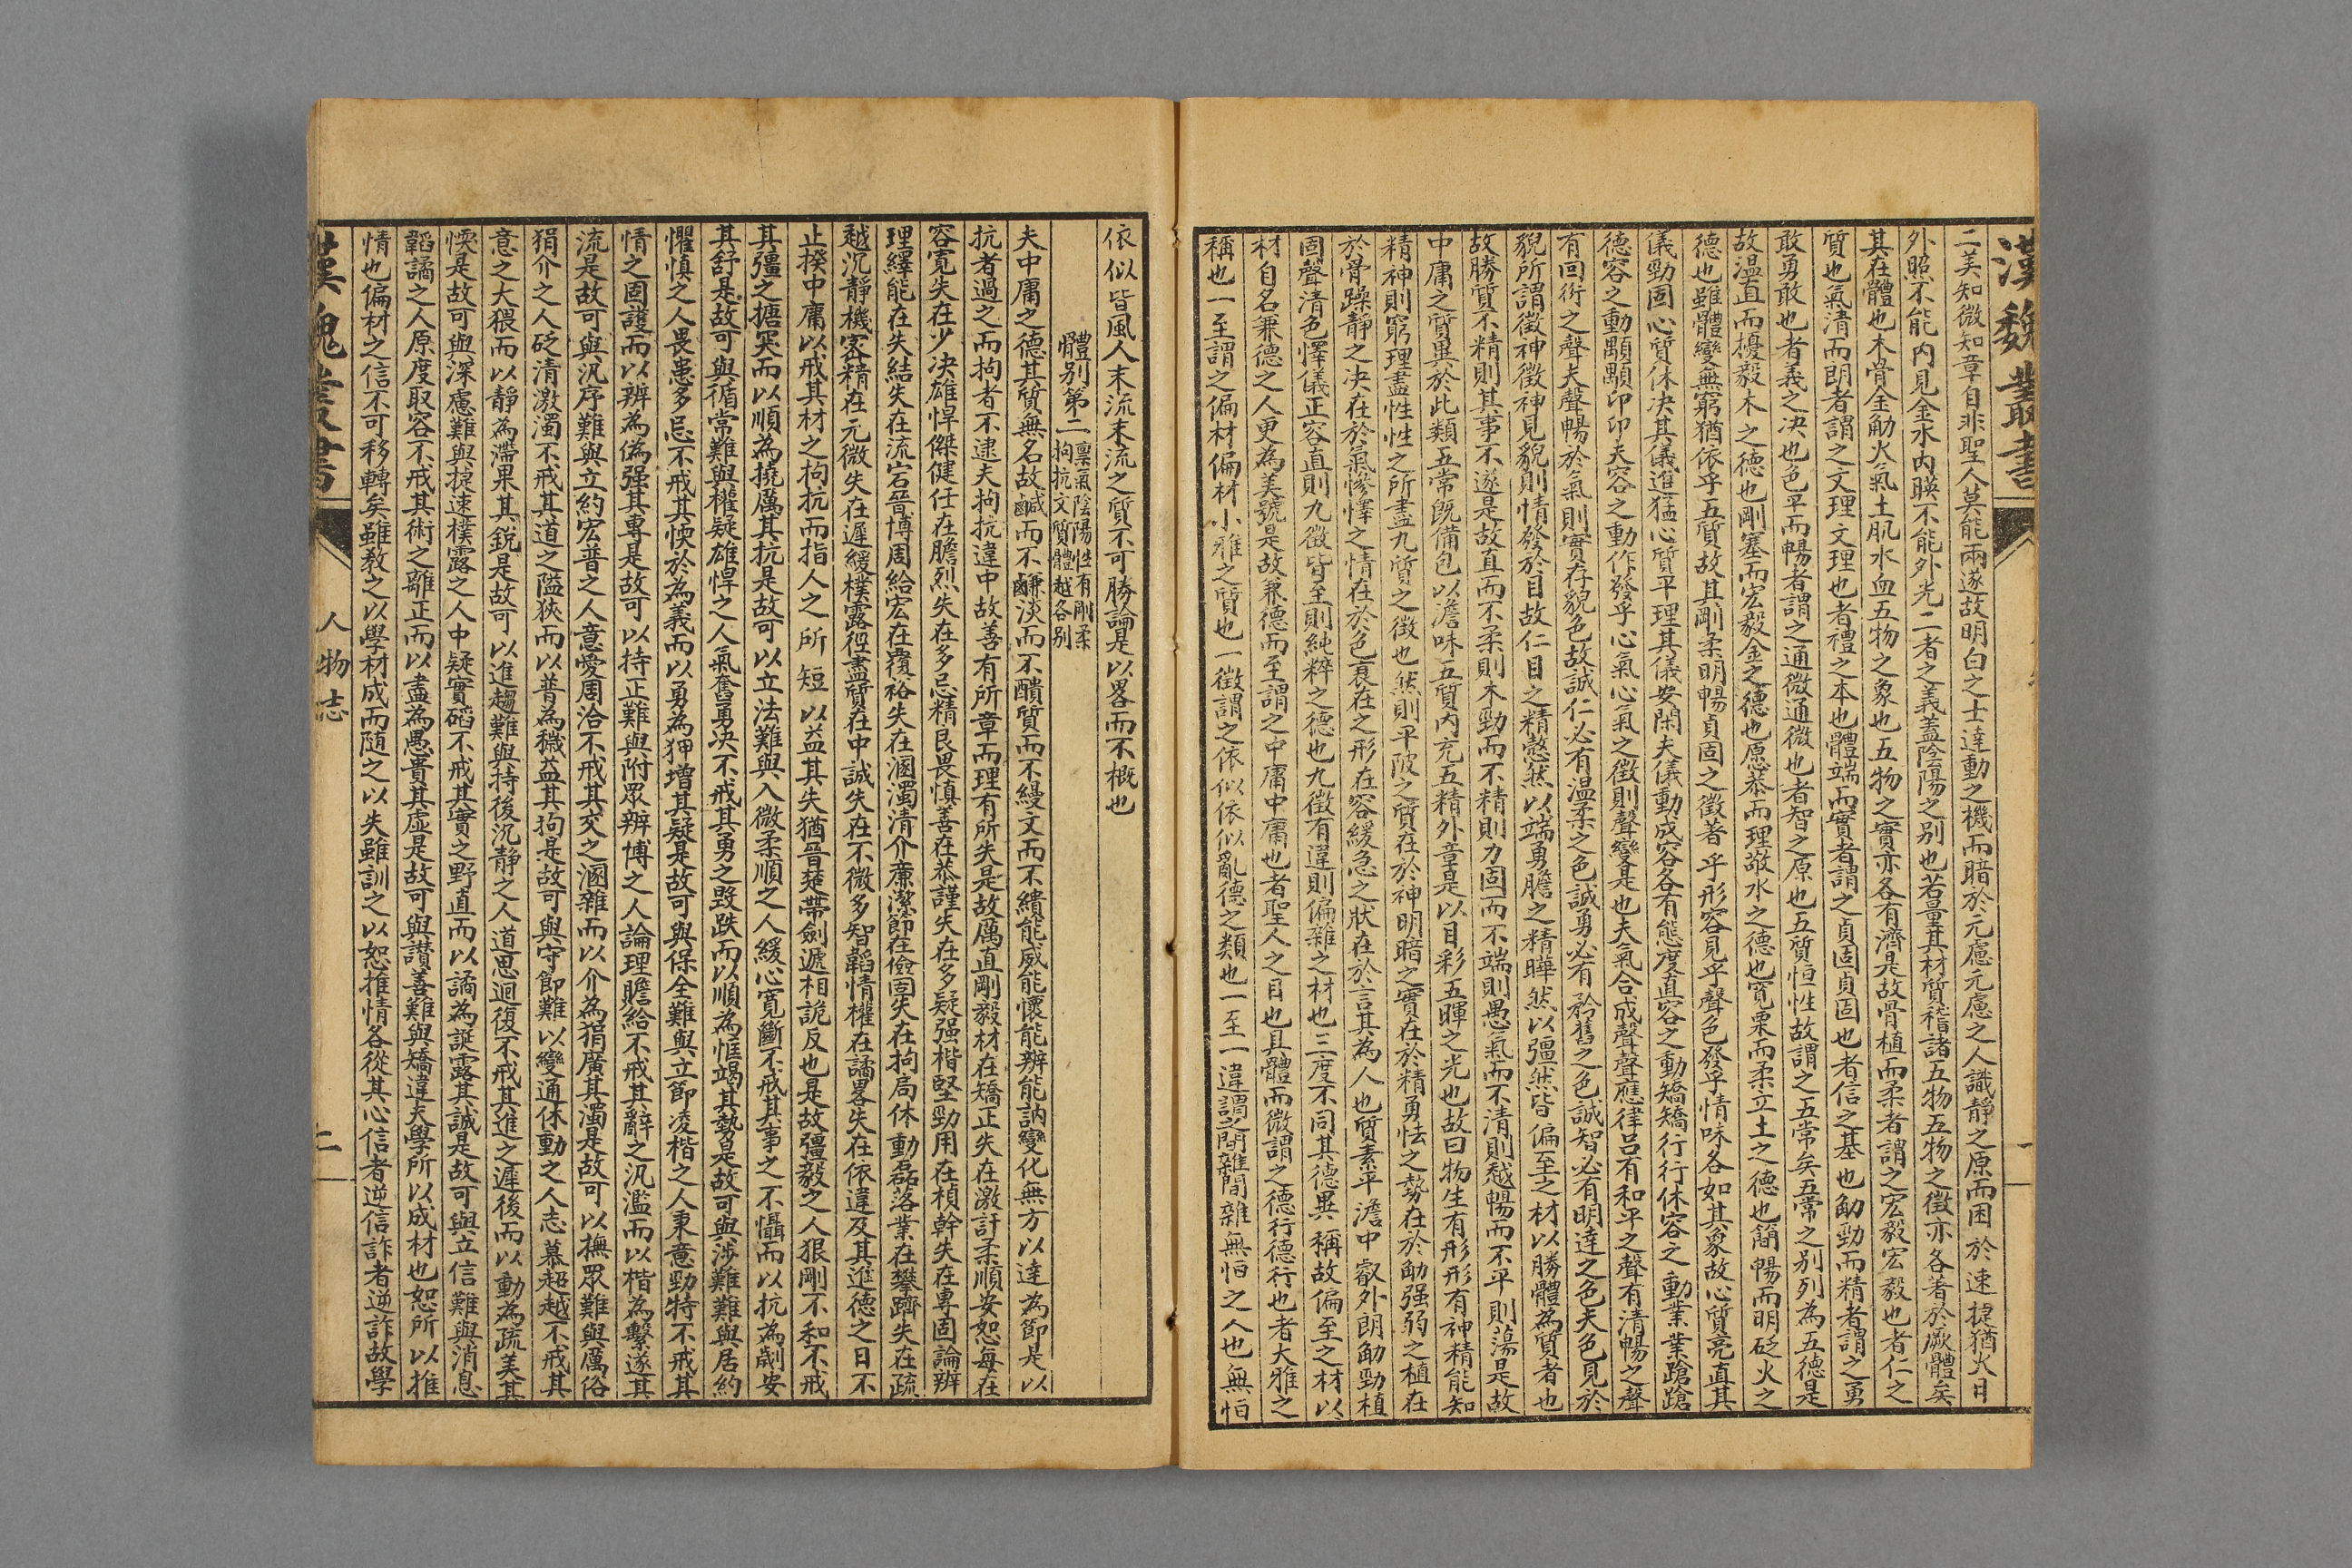 漢魏叢書
二美知微知章自非聖人莫能兩遂故明白之士達動之機而暗於元慮元慮之人識靜之原而困於速捷猶火日
外照不能内見金水内暎不能外光二者之義蓋陰陽之别也若量其材質稽諸五物五物之徵亦各著於厥體矣
其在體也木骨金觔火氣土肌水血五物之象也五物之實亦各有濟是故骨植而柔者謂之宏毅宏毅也者仁之
質也氣清而朗者謂之文理文理也者禮之本也體端而實者謂之貞固貞固也者信之基也觔勁而精者謂之勇
敢勇敢也者義之决也色平而暢者謂之通微通微也者智之原也五質恒性故謂之五常矣五常之别列為五德是
故温直而擾毅木之德也剛塞而宏毅金之德也愿恭而理敬水之德也寛栗而柔立土之德也簡暢而明砭火之
德也雖體變無窮猶依乎五質故其剛柔明暢貞固之徵著乎形容見乎聲色發乎情味各如其象故心質亮直其
儀勁固心質休决其儀進猛心質平理其儀安閑夫儀動成容各有態度直容之動矯矯行行休容之動業業蹌蹌
德容之動顒顒卬卬夫容之動作發乎心氣心氣之徵則聲變是也夫氣合成聲聲應律呂有和平之聲有清暢之聲
有回衍之聲夫聲暢於氣則實存貌色故誠仁必有温柔之色誠勇必有矜奮之色誠智必有明達之色夫色見於
貌所謂徵神徵神見貌則情發於目故仁目之精慤然以端勇膽之精曄然以彊然皆偏至之材以勝體為質者也
故勝質不精則其事不遂是故直而不柔則木勁而不精則力固而不端則愚氣而不清則越暢而不平則蕩是故
中庸之質異於此類五常既備包以澹味五質内充五精外章是以目彩五暉之光也故曰物生有形形有神精能知
精神則窮理盡性性之所盡九質之徵也然則平陂之質在於神明暗之實在於精勇怯之勢在於觔强弱之植在
於骨躁靜之决在於氣慘懌之情在於色衰在之形在容緩急之狀在於言其為人也質素平澹中叡外朗觔勁植
固聲清色懌儀正容直則九徵皆至則純粹之德也九徵有違則偏雜之材也三度不同其德異稱故偏至之材以
材自名兼德之人更為美號是故兼德而至謂之中庸中庸也者聖人之目也具體而微謂之德行德行也者大雅之
稱也一至謂之偏材偏材小雅之質也一徵謂之依似依似亂德之類也一至一違謂之間雜間雜無恒之人也無恒
依似皆風人末流末流之質不可勝論是以畧而不概也
體别第二 稟氣陰陽性有剛柔拘抗文質體越各别
夫中庸之德其質無名故鹹而不鹻淡而不醴質而不縵文而不繢能威能懷能辨能訥變化無方以達為節是以
抗者過之而拘者不逮夫拘抗違中故善有所章而理有所失是故厲直剛毅材在矯正失在激訐柔順安恕每在
容寛失在少决雄悍傑健任在膽烈失在多忌精良畏慎善在恭謹失在多疑强楷堅勁用在楨幹失在專固論辨
理繹能在失結失在流宕普博周給宏在覆裕失在溷濁清介廉潔節在儉固失在拘局休動磊落業在攀躋失在疏
越沉靜機密精在元微失在遲緩樸露徑盡質在中誠失在不微多智韜情權在譎畧失在依違及其進德之日不
止揆中庸以戒其材之拘抗而指人之所短以益其失猶晉楚帶劍遞相詭反也是故彊毅之人狠剛不和不戒
其彊之搪突而以順為撓厲其抗是故可以立法難與入微柔順之人緩心寛斷不戒其事之不懾而以抗為劌安
其舒是故可與循常難與權疑雄悍之人氣奮勇决不戒其勇之毁跌而以順為恇竭其勢是故可與涉難難與居約
懼慎之人畏患多忌不戒其愞於為義而以勇為狎增其疑是故可與保全難與立節凌楷之人秉意勁特不戒其
情之固護而以辨為偽强其專是故可以持正難與附眾辨博之人論理贍給不戒其辭之汎濫而以楷為繫遂其
流是故可與汎序難與立約宏普之人意愛周洽不戒其交之溷雜而以介為狷廣其濁是故可以撫眾難與厲俗
狷介之人砭清激濁不戒其道之隘狹而以普為穢益其拘是故可與守節難以變通休動之人志慕超越不戒其
意之大猥而以靜為滯果其銳是故可以進趨難與持後沉靜之人道思迴復不戒其進之遲後而以動為疏美其
愞是故可與深慮難與捷速樸露之人中疑實䂫不戒其實之野直而以譎為誕露其誠是故可與立信難與消息
韜譎之人原度取容不戒其術之離正而以盡為愚貴其虛是故可與讃善難與矯違夫學所以成材也恕所以推
情也偏材之信不可移轉矣雖教之以學材成而随之以失雖訓之以恕推情各從其心信者逆信詐者逆詐故學
漢魏叢書 人物志 二